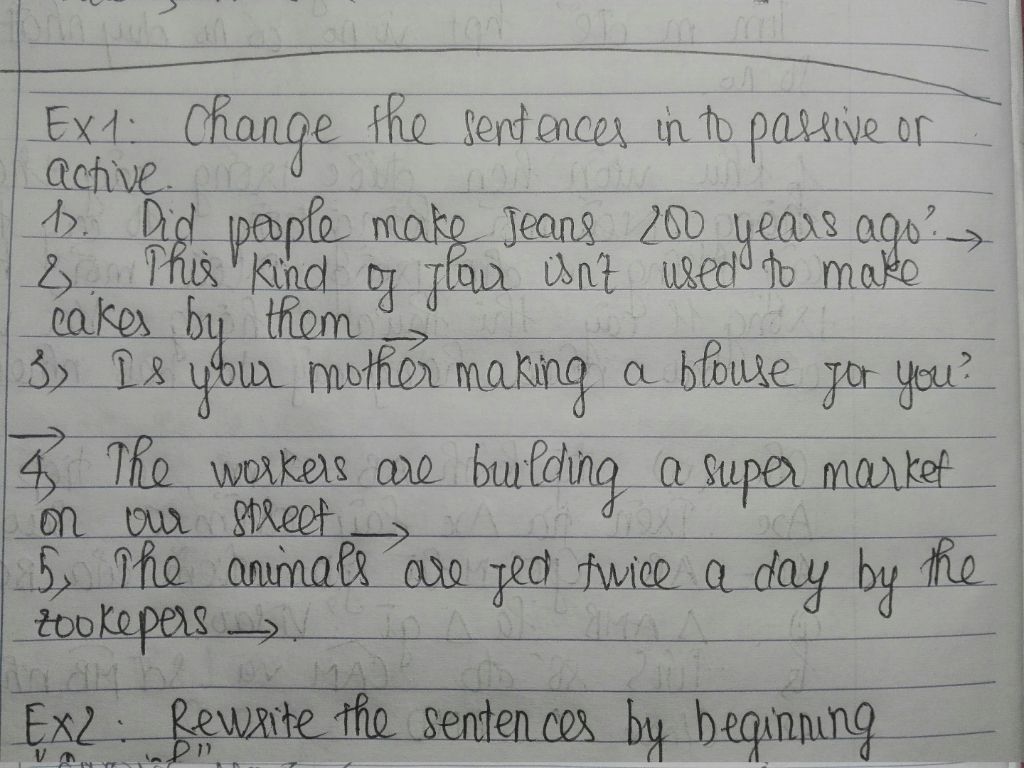 Ex1: Change the sentences in to passive or
active.
1). Did people make Jeans 200 years ago? →
2, This kind of flour isn't used to make
cakes by them →
3, Is your mother making a blouse for you?
→
4, The workers are building a super market
on our street →
5, The animals are fed twice a day by the
zookepers →.
Ex2: Rewrite the sentences by beginning